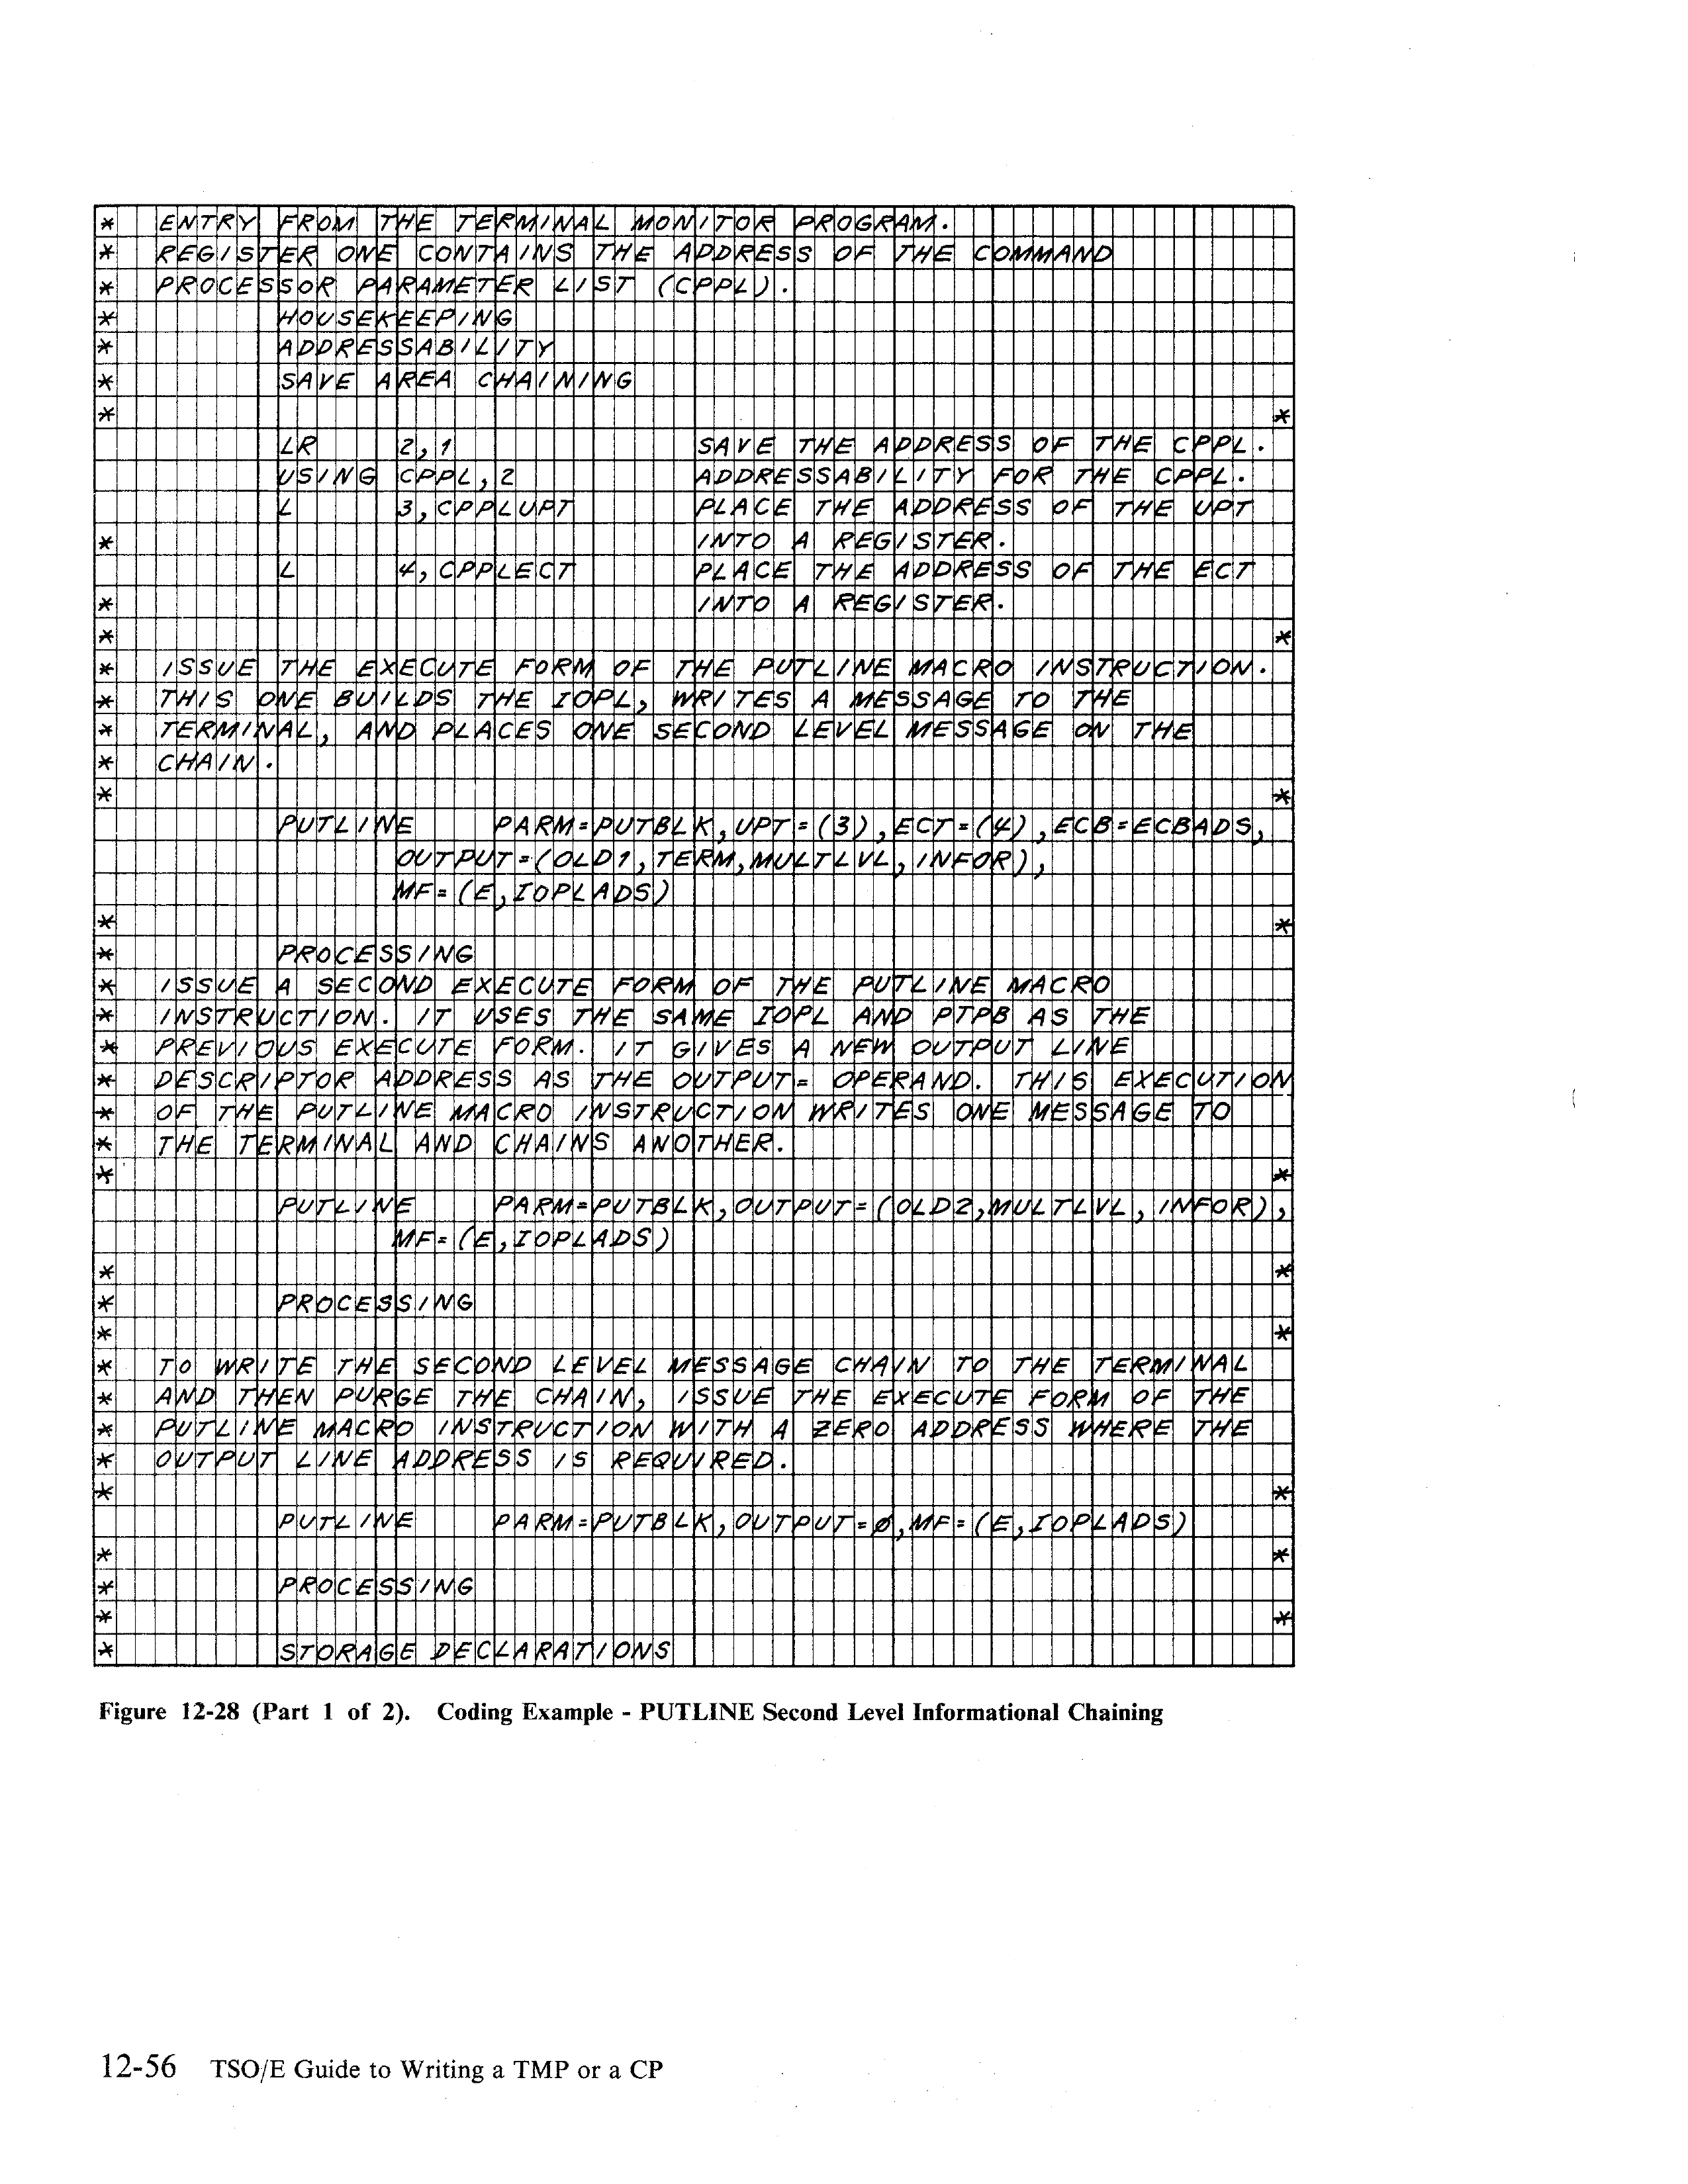 * ENTRY FROM THE TERMINAL MONITOR PROGRAM.
* REGISTER ONE CONTAINS THE ADDRESS OF THE COMMAND
* PROCESSOR PARAMETER LIST (CPPL).
* HOUSEKEEPING
* ADDRESSABILITY
* SAVE AREA CHAINING
* *
LR 2,1 SAVE THE ADDRESS OF THE CPPL.
USING CPPL,2 ADDRESSABILITY FOR THE CPPL.
L 3,CPPLUPT PLACE THE ADDRESS OF THE UPT
* INTO A REGISTER.
L 4,CPPLECT PLACE THE ADDRESS OF THE ECT
* INTO A REGISTER.
* *
* ISSUE THE EXECUTE FORM OF THE PUTLINE MACRO INSTRUCTION.
* THIS ONE BUILDS THE IOPL, WRITES A MESSAGE TO THE
* TERMINAL, AND PLACES ONE SECOND LEVEL MESSAGE ON THE
* CHAIN.
* *
PUTLINE PARM=PUTBLK,UPT=(3),ECT=(4),ECB=ECBADS,
OUTPUT=(OLD1,TERM,MULTLVL,INFOR),
MF=(E,IOPLADS)
* *
* PROCESSING
* ISSUE A SECOND EXECUTE FORM OF THE PUTLINE MACRO
* INSTRUCTION. IT USES THE SAME IOPL AND PTPB AS THE
* PREVIOUS EXECUTE FORM. IT GIVES A NEW OUTPUT LINE
* DESCRIPTOR ADDRESS AS THE OUTPUT= OPERAND. THIS EXECUTION
* OF THE PUTLINE MACRO INSTRUCTION WRITES ONE MESSAGE TO
* THE TERMINAL AND CHAINS ANOTHER.
* *
PUTLINE PARM=PUTBLK,OUTPUT=(OLD2,MULTLVL,INFOR),
MF=(E,IOPLADS)
* *
* PROCESSING
* *
* TO WRITE THE SECOND LEVEL MESSAGE CHAIN TO THE TERMINAL
* AND THEN PURGE THE CHAIN, ISSUE THE EXECUTE FORM OF THE
* PUTLINE MACRO INSTRUCTION WITH A ZERO ADDRESS WHERE THE
* OUTPUT LINE ADDRESS IS REQUIRED.
* *
PUTLINE PARM=PUTBLK,OUTPUT=0,MF=(E,IOPLADS)
* *
* PROCESSING
* *
* STORAGE DECLARATIONS
Figure 12-28 (Part 1 of 2). Coding Example - PUTLINE Second Level Informational Chaining
12-56 TSO/E Guide to Writing a TMP or a CP